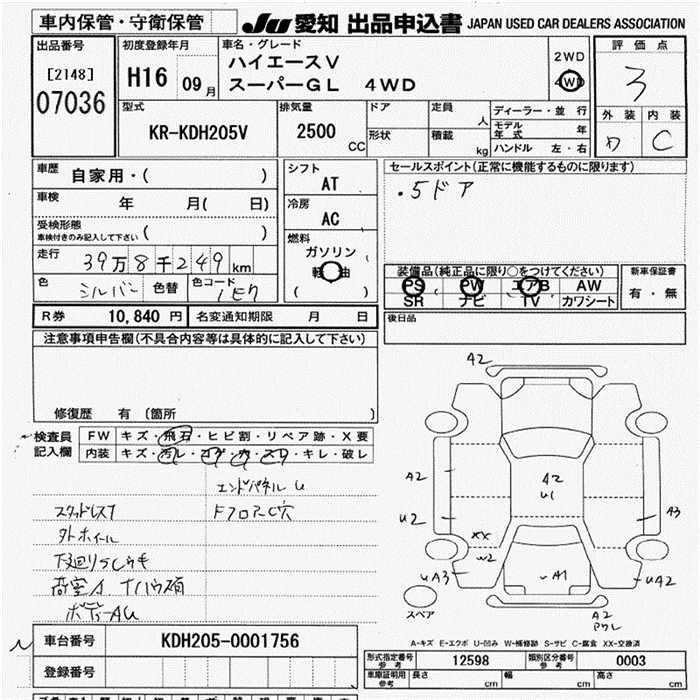 車内保管・守衛保管
JU 愛知 出品申込書 JAPAN USED CAR DEALERS ASSOCIATION
出品番号
[2148]
07036
初度登録年月
H16 09月
車名・グレード
ハイエースV
スーパーGL 4WD
2WD
4WD
評価点
3
外装 内装
C
型式
KR-KDH205V
排気量
2500
CC
ドア
形状
定員
人
積載
kg
ディーラー・並行
モデル年式 年
ハンドル 左・右
車歴
自家用・( )
車検 年 月( 日)
受検形態
車検付きのみ記入して下さい ( )
走行
39万8千249km
色
シルバー
色替
色コード
1E7
シフト
AT
冷房
AC
燃料
ガソリン
軽油
( )
セールスポイント(正常に機能するものに限ります)
.5ドア
装備品(純正品に限り○をつけてください)
PS PW エアB AW
SR ナビ TV カワシート
新車保証書
有・無
R券 10,840 円 名変通知期限 月 日
後日品
注意事項申告欄(不具合内容等は具体的に記入して下さい)
修復歴 有 (箇所 )
検査員
記入欄
FW キズ・飛石・ヒビ割・リペア跡・X要
内装 キズ・汚レ・コゲ・穴・スレ・キレ・破レ
エンドパネルU
スタッドレス7
FフロアーC穴
外ホイール
下廻りS
ボディーAU
A2
A2
U2
A2
U1
A3
XX
W2
UA3
UA1
UA2
A2
スペア
A-キズ E-エクボ U-凹み W-補修跡 S-サビ C-腐食 XX-交換済
車台番号 KDH205-0001756
登録番号
形式指定番号
参考
12598
類別区分番号
参考
0003
車庫証明用
参考
長さ cm
幅 cm
高さ cm